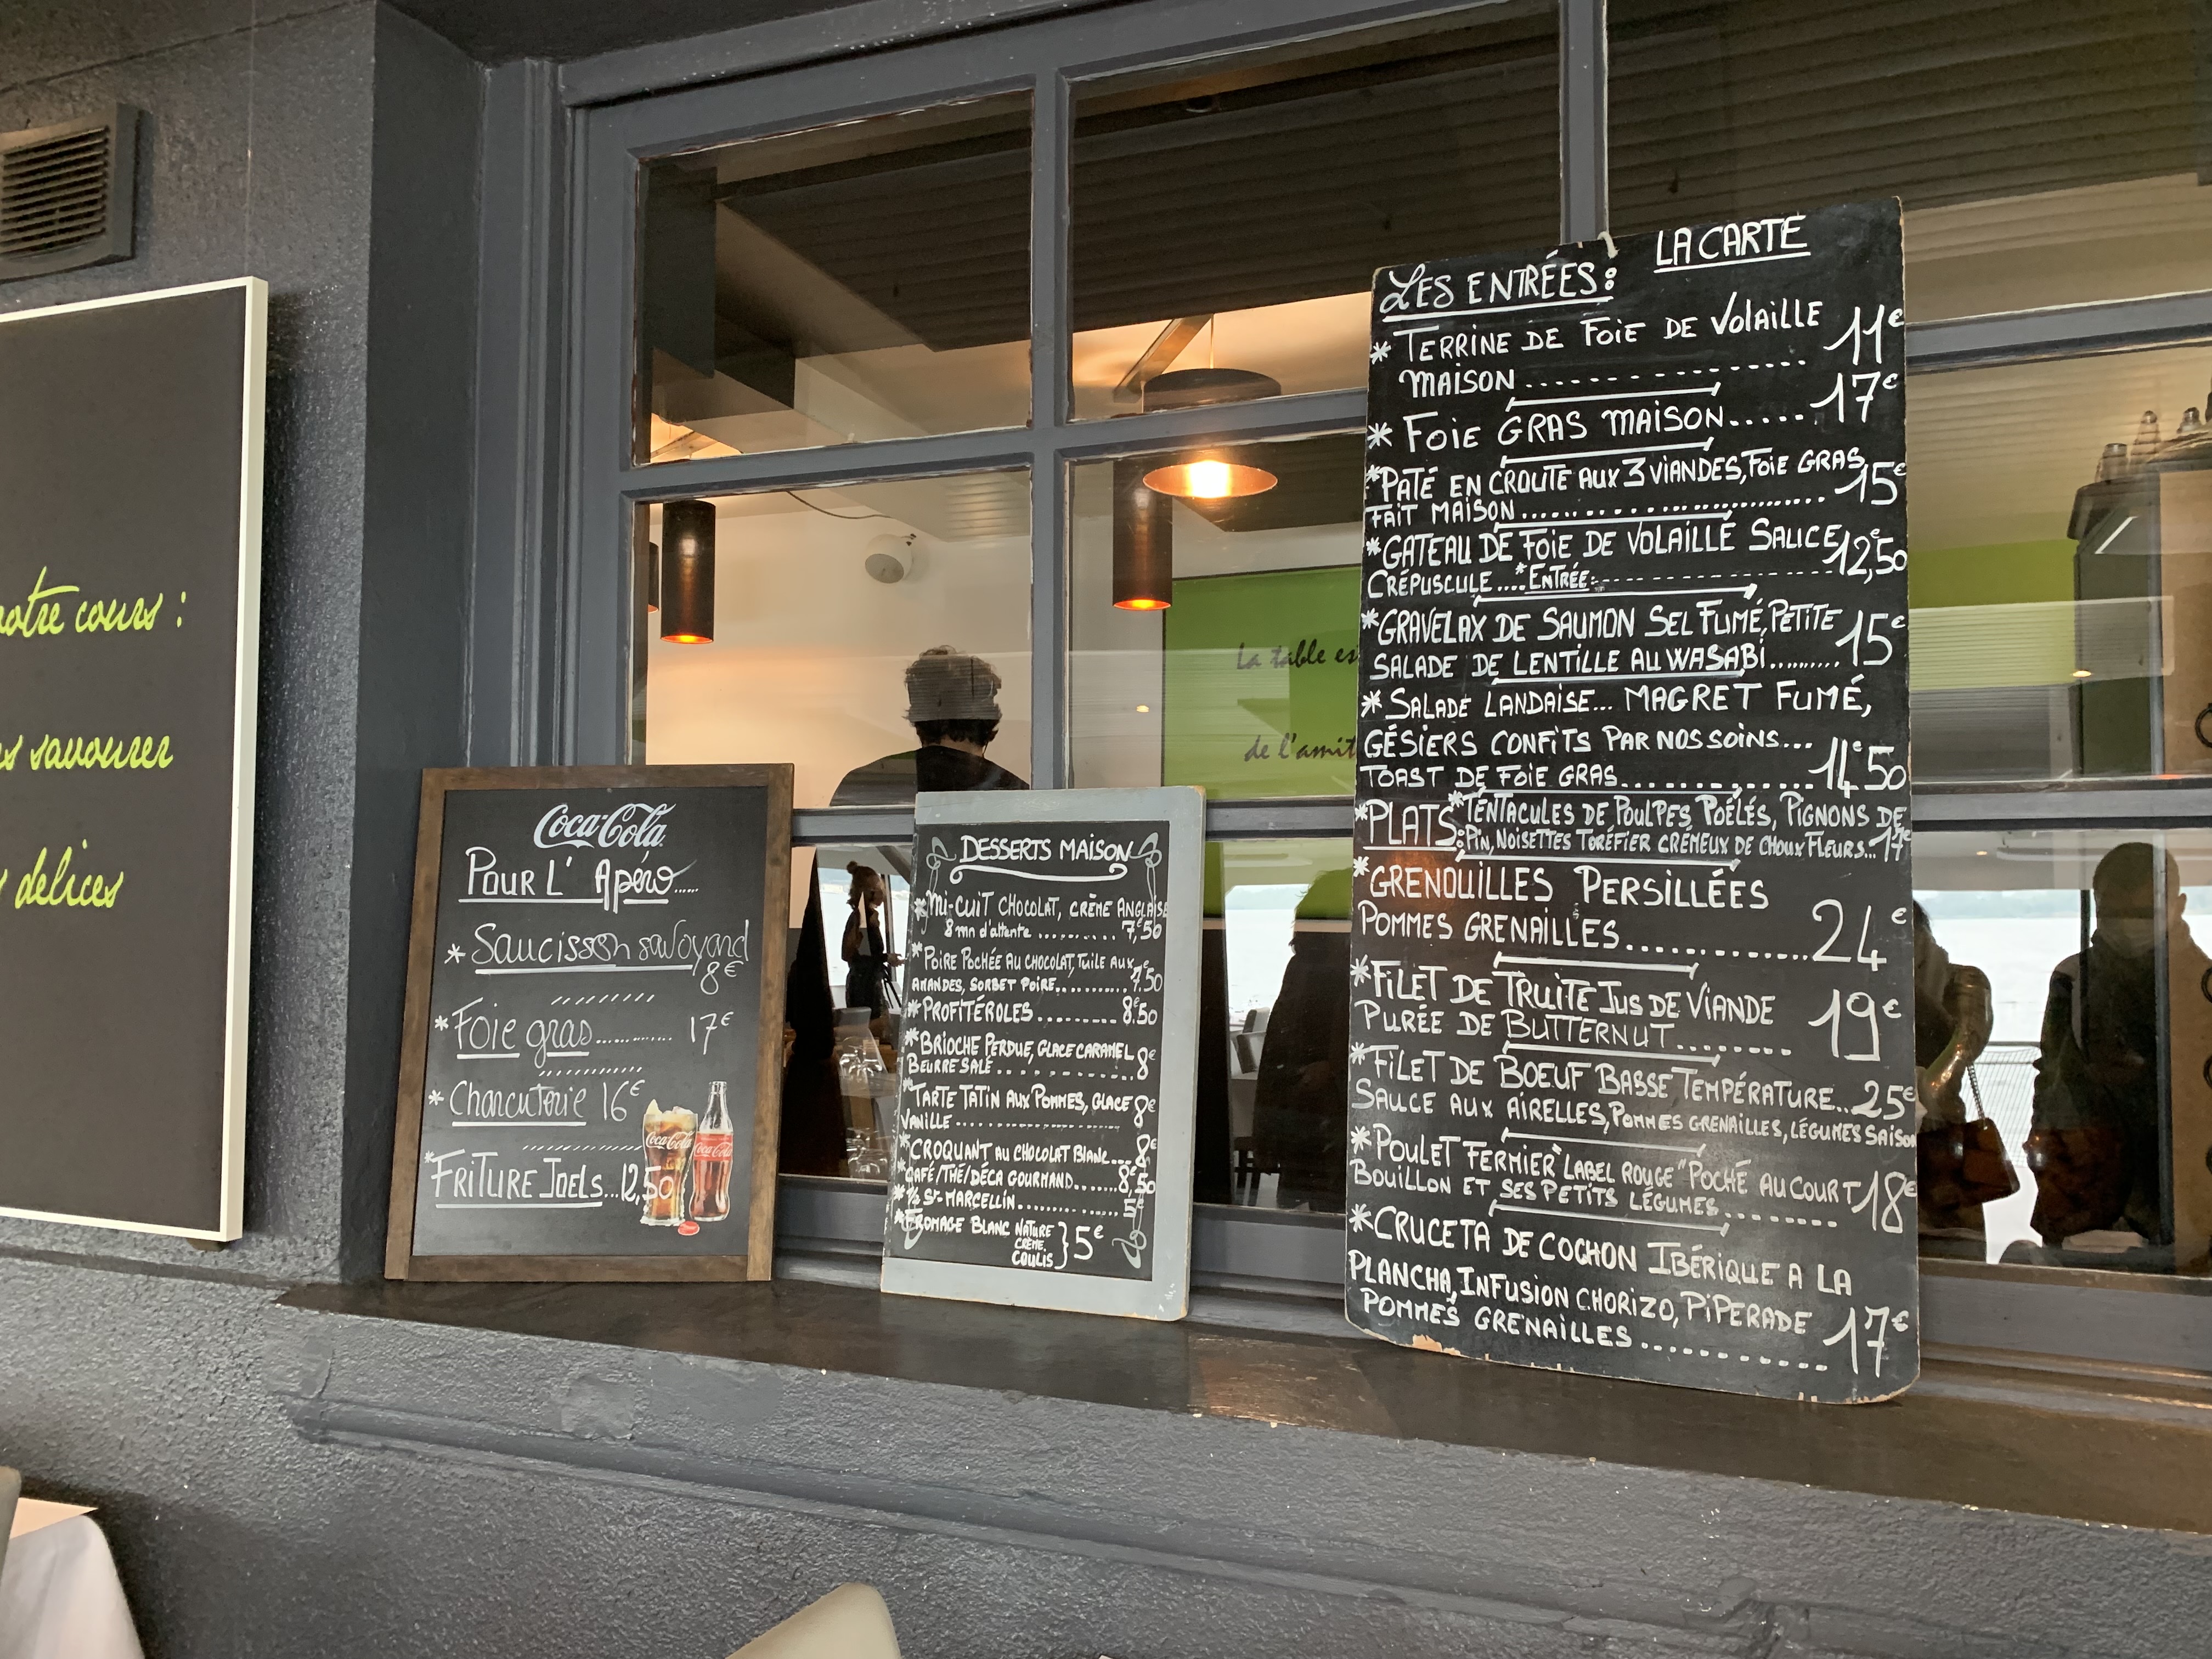 notre cours :
savourer
delices
Coca-Cola
POUR L' Apéro......
* Saucisson savoyard
8€
* Foie gras........... 17€
* Charcuterie 16€
* FRITURE JOELS...12,50
Coca-Cola
Coca-Cola
DESSERTS MAISON
* MI-CUIT CHOCOLAT, CRÈME ANGLAISE
8 mn d'attente ........... 7,€50
* POIRE POCHÉE AU CHOCOLAT, TUILE AUX
AMANDES, SORBET POIRE........... 7,€50
* PROFITÉROLES......... 8,€50
* BRIOCHE PERDUE, GLACE CARAMEL
BEURRE SALÉ............... 8€
* TARTE TATIN AUX POMMES, GLACE
VANILLE .................... 8€
* CROQUANT AU CHOCOLAT BLANC.... 8€
* CAFÉ/THÉ/DÉCA GOURMAND....... 8,€50
* 1/2 ST-MARCELLIN........... 5€
* FROMAGE BLANC NATURE
CRÈME
COULIS } 5€
La table es
de l'amit
LA CARTE
LES ENTRÉES :
* TERRINE DE FOIE DE VOLAILLE
MAISON .................... 11€
* FOIE GRAS MAISON...... 17€
* PATÉ EN CROUTE AUX 3 VIANDES, FOIE GRAS
FAIT MAISON ........................ 15€
* GATEAU DE FOIE DE VOLAILLE SAUCE
CRÉPUSCULE.... *ENTRÉE: -------------- 12,€50
* GRAVELAX DE SAUMON SEL FUMÉ, PETITE
SALADE DE LENTILLE AU WASABI......... 15€
* SALADE LANDAISE... MAGRET FUMÉ,
GÉSIERS CONFITS PAR NOS SOINS...
TOAST DE FOIE GRAS............. 14,€50
*PLATS: *TENTACULES DE POULPES POÉLÉS, PIGNONS DE
PIN, NOISETTES TORÉFIER CRÉMEUX DE CHOUX FLEURS... 17€
* GRENOUILLES PERSILLÉES
POMMES GRENAILLES............. 24€
* FILET DE TRUITE JUS DE VIANDE
PURÉE DE BUTTERNUT......... 19€
* FILET DE BOEUF BASSE TEMPÉRATURE... 25€
SAUCE AUX AIRELLES, POMMES GRENAILLES, LÉGUMES SAISON
* POULET FERMIER "LABEL ROUGE" POCHÉ AU COURT
BOUILLON ET SES PETITS LÉGUMES......... 18€
* CRUCETA DE COCHON IBÉRIQUE A LA
PLANCHA, INFUSION CHORIZO, PIPERADE
POMMES GRENAILLES.............. 17€